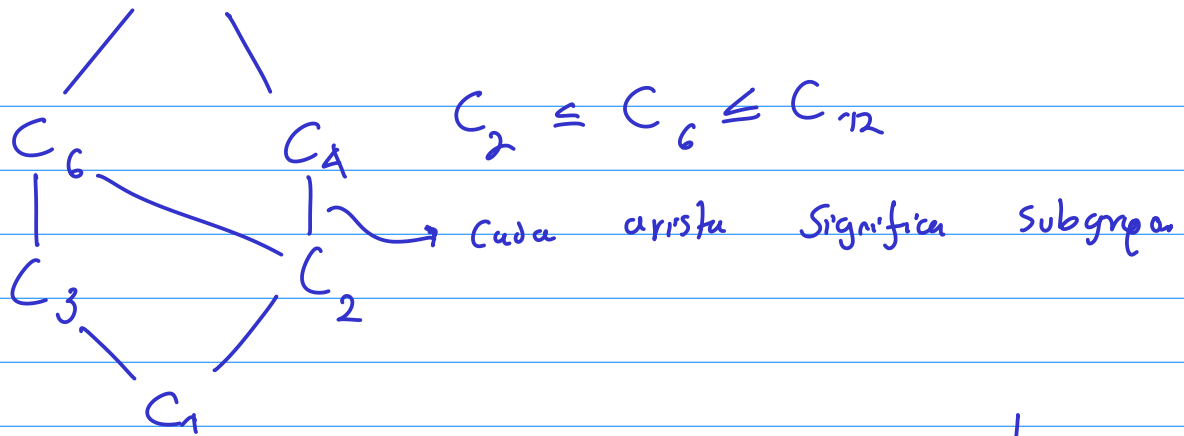 C₂ ≤ C₆ ≤ C₁₂
C₆ C₄
Cada arista significa subgrupo
C₃ C₂
C₁